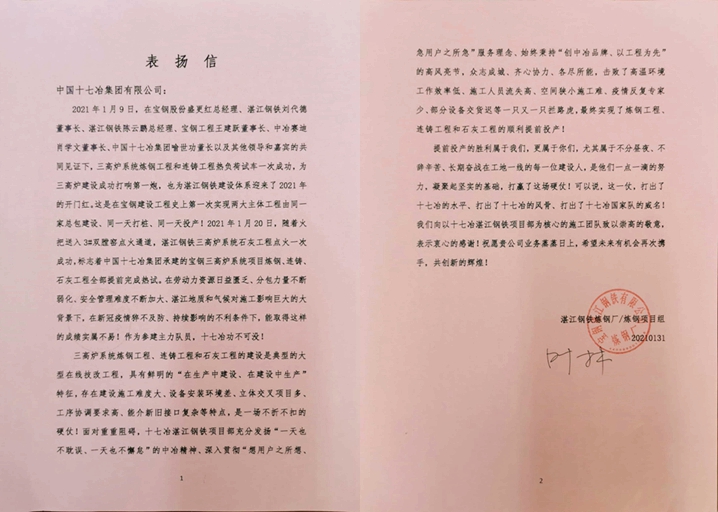 表 扬 信
中国十七冶集团有限公司：
2021年1月9日，在宝钢股份盛更红总经理、湛江钢铁刘代德
董事长、湛江钢铁陈云鹏总经理、宝钢工程王建跃董事长、中冶赛迪
肖学文董事长、中国十七冶集团喻世功董长以及其他领导和嘉宾的共
同见证下，三高炉系统炼钢工程和连铸工程热负荷试车一次成功，为
三高炉建设成功打响第一炮，也为湛江钢铁建设体系迎来了2021年
的开门红。这是在宝钢建设工程史上第一次实现两大主体工程由同一
家总包建设、同一天打桩、同一天投产！2021年1月20日，随着大
把送入3#双膛窑点火通道，湛江钢铁三高炉系统石灰工程点火一次
成功，标志着中国十七冶集团承建的宝钢三高炉系统项目炼钢、连铸、
石灰工程全部提前完成热试。在劳动力资源日益匮乏、分包力量不断
弱化、安全管理难度不断加大、湛江地质和气候对施工影响巨大的大
背景下，在新冠疫情猝不及防、持续影响的不利条件下，能取得这
样的成绩实属不易！作为参建主力队员，十七冶功不可没！
三高炉系统炼钢工程、连铸工程和石灰工程的建设是典型的大
型在线技改工程，具有鲜明的“在生产中建设、在建设中生产”
特征，存在建设施工难度大、设备安装环境差、立体交叉项目多、
工序协调要求高、能介新旧接口复杂等特点，是一场不折不扣的
硬仗！面对重重阻碍，十七冶湛江钢铁项目部充分发扬“一天也
不耽误、一天也不懈怠”的中冶精神、深入贯彻“想用户之所想、
1
急用户之所急”服务理念、始终秉持“创中冶品牌、以工程为先”
的高风亮节，众志成城、齐心协力、各尽所能，击败了高温环境
工作效率低、施工人员流失高、空间狭小施工难、疫情反复专家
少、部分设备交货迟等一只又一只拦路虎，最终实现了炼钢工程、
连铸工程和石灰工程的顺利提前投产！
提前投产的胜利属于我们，更属于你们，尤其属于不分昼夜、不
辞辛苦、长期奋战在工地一线的每一位建设人，是他们一点一滴的努
力，凝聚起坚实的基础，打赢了这场硬仗！可以说，这一仗，打出了
十七冶的水平、打出了十七冶的风骨、打出了十七冶国家队的威名！
我们向以十七冶湛江钢铁项目部为核心的施工团队致以崇高的敬意，
表示衷心的感谢！祝愿贵公司业务蒸蒸日上，希望未来有机会再次携
手，共创新的辉煌！
湛江钢铁炼钢厂/炼钢项目组
20210131
2